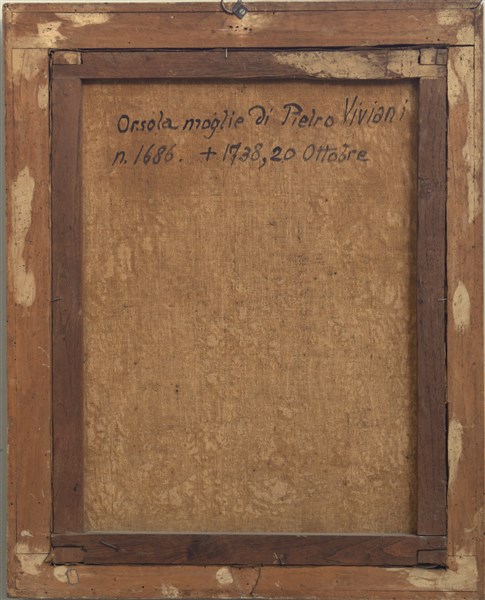 Orsola moglie di Pietro Viviani
n. 1686. + 1738, 20 Ottobre